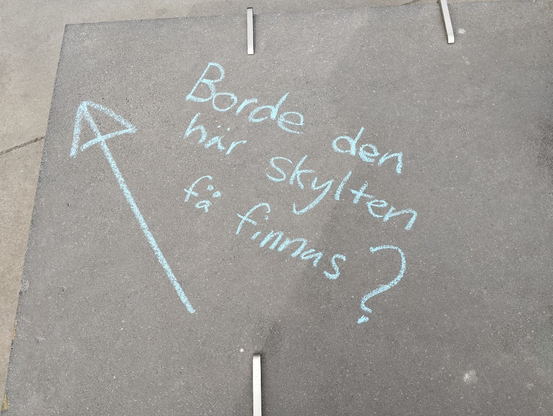 Borde den
här skylten
få finnas?